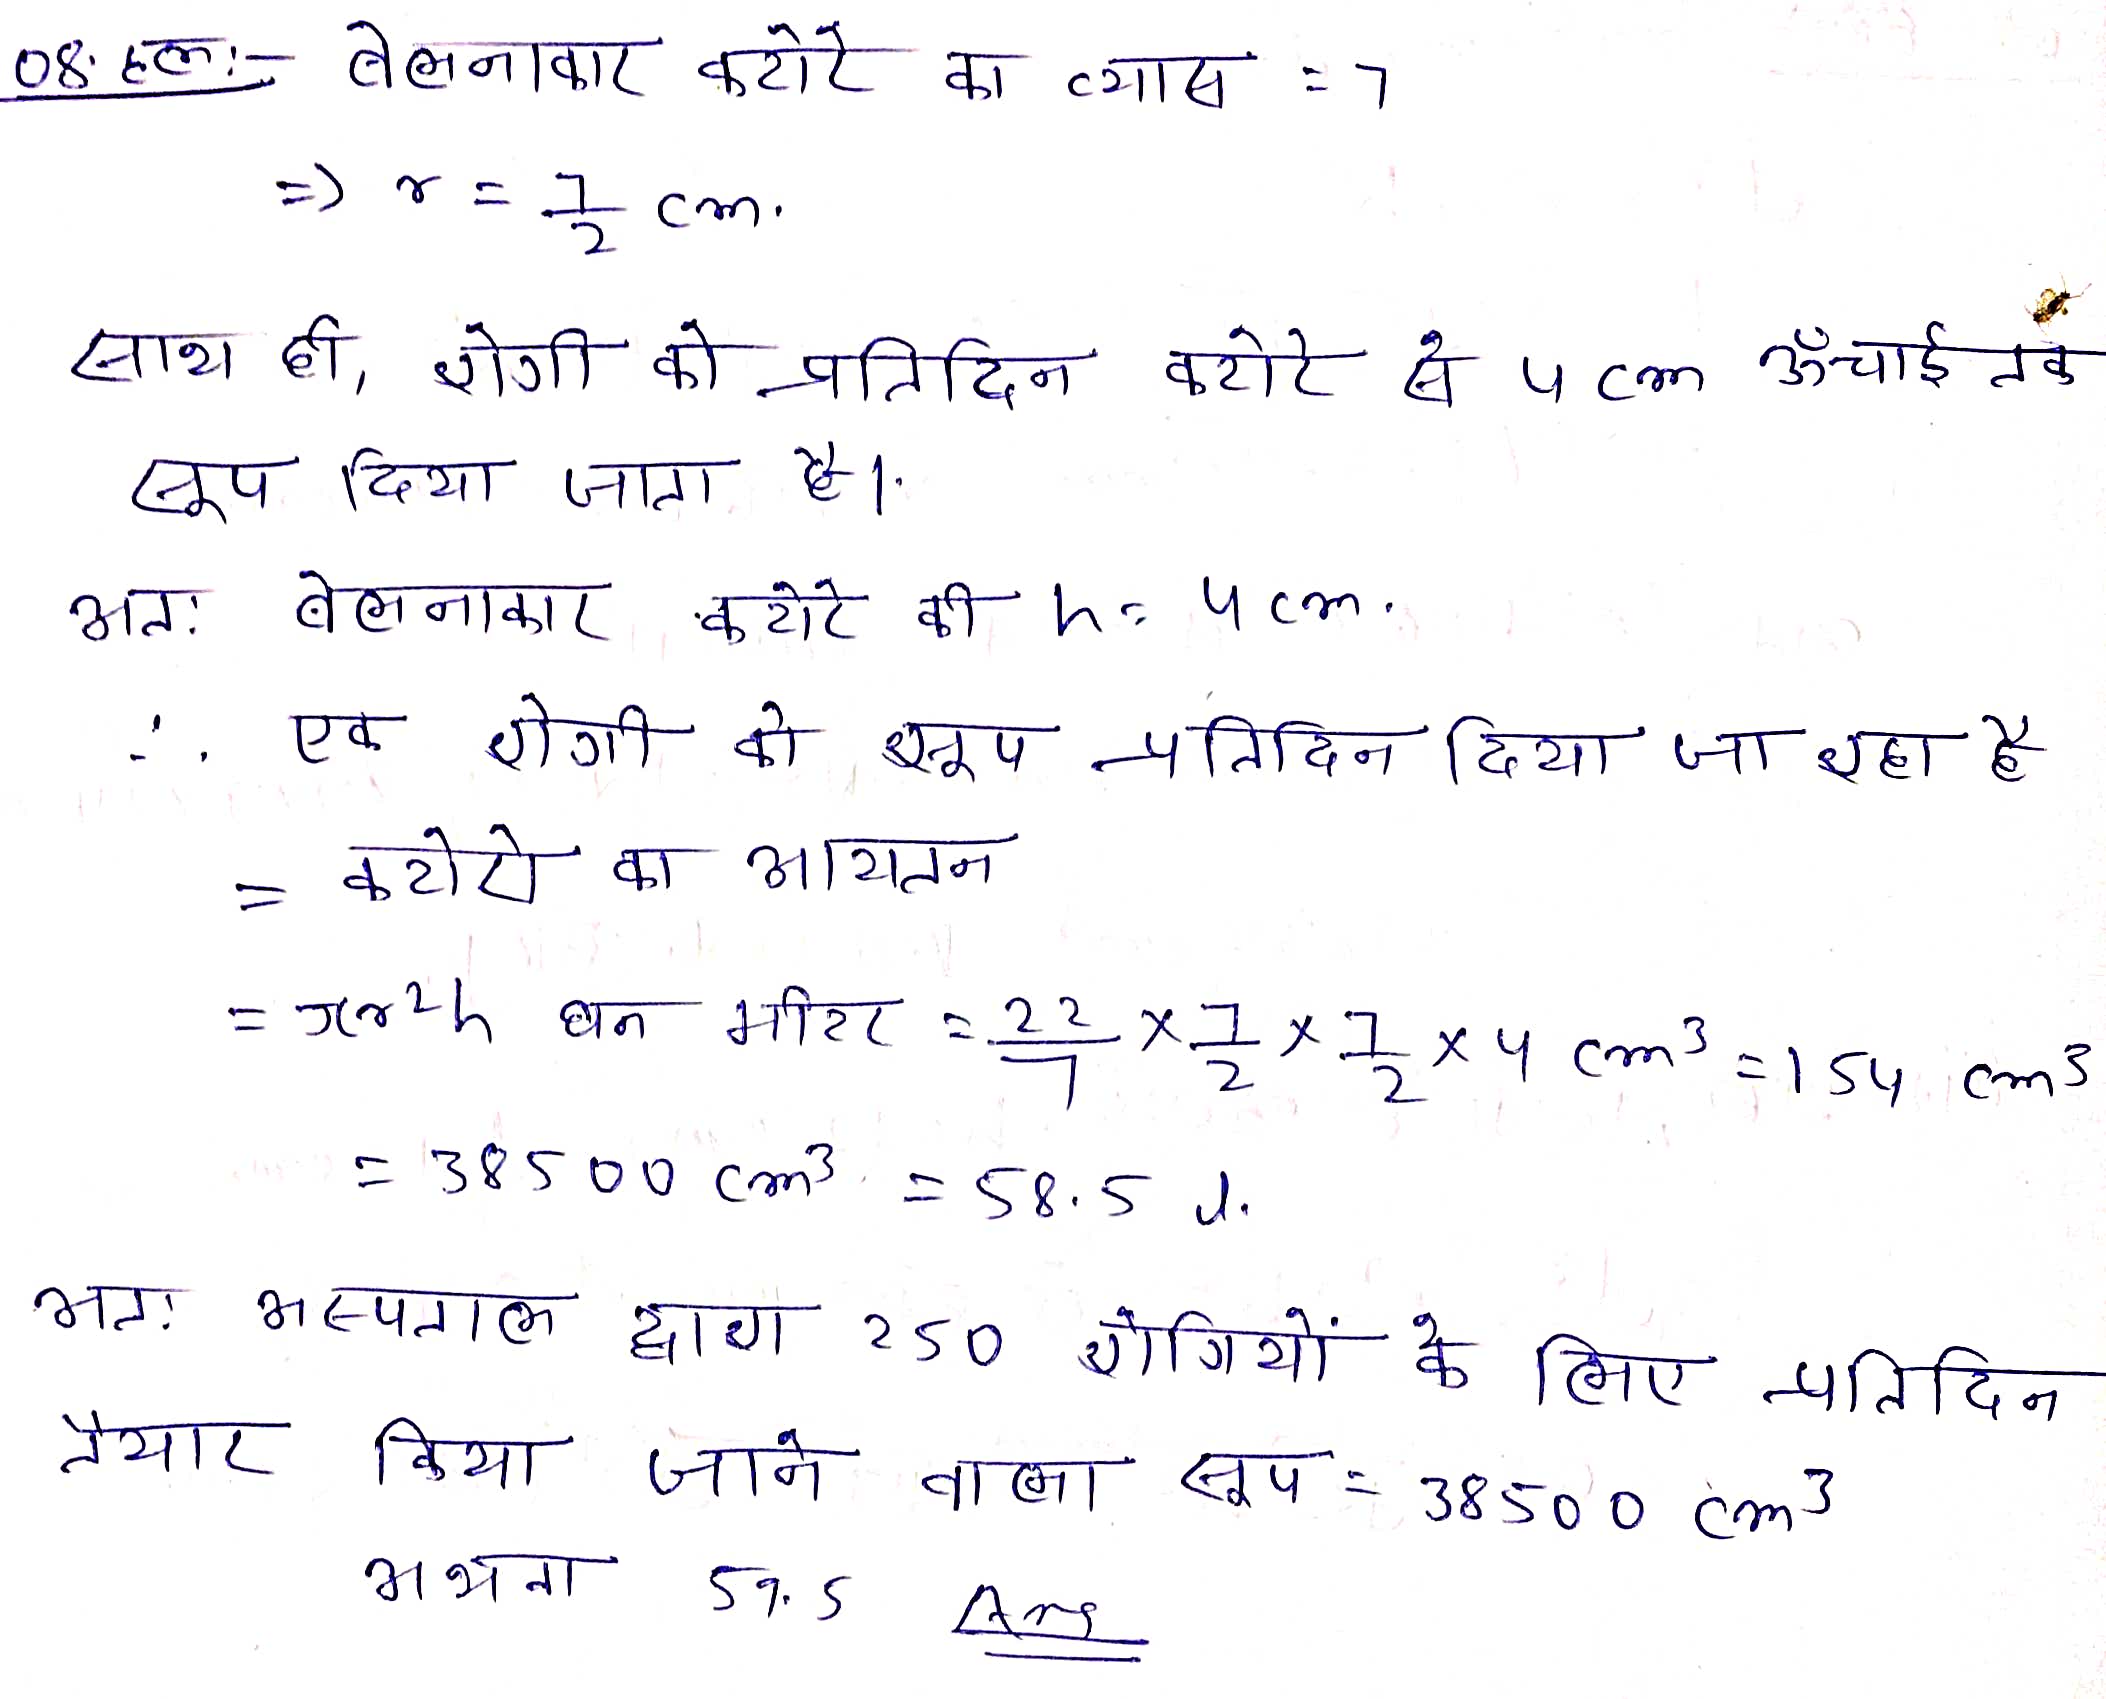 08. हल:- बेलनाकार कटोरे का व्यास = 7
=> r = 7/2 cm.
साथ ही, रोगी को प्रतिदिन कटोरे से 4 cm ऊँचाई तक
सूप दिया जाता है।
अतः बेलनाकार कटोरे की h = 4 cm.
∴ एक रोगी को सूप प्रतिदिन दिया जा रहा है
= कटोरो का आयतन
= πr²h घन मीटर = 22/7 × 7/2 × 7/2 × 4 cm³ = 154 cm³
= 38500 cm³ = 58.5 l.
अतः अस्पताल द्वारा 250 रोगियों के लिए प्रतिदिन
तैयार किया जाने वाला सूप = 38500 cm³
अथवा 59.5 Ans